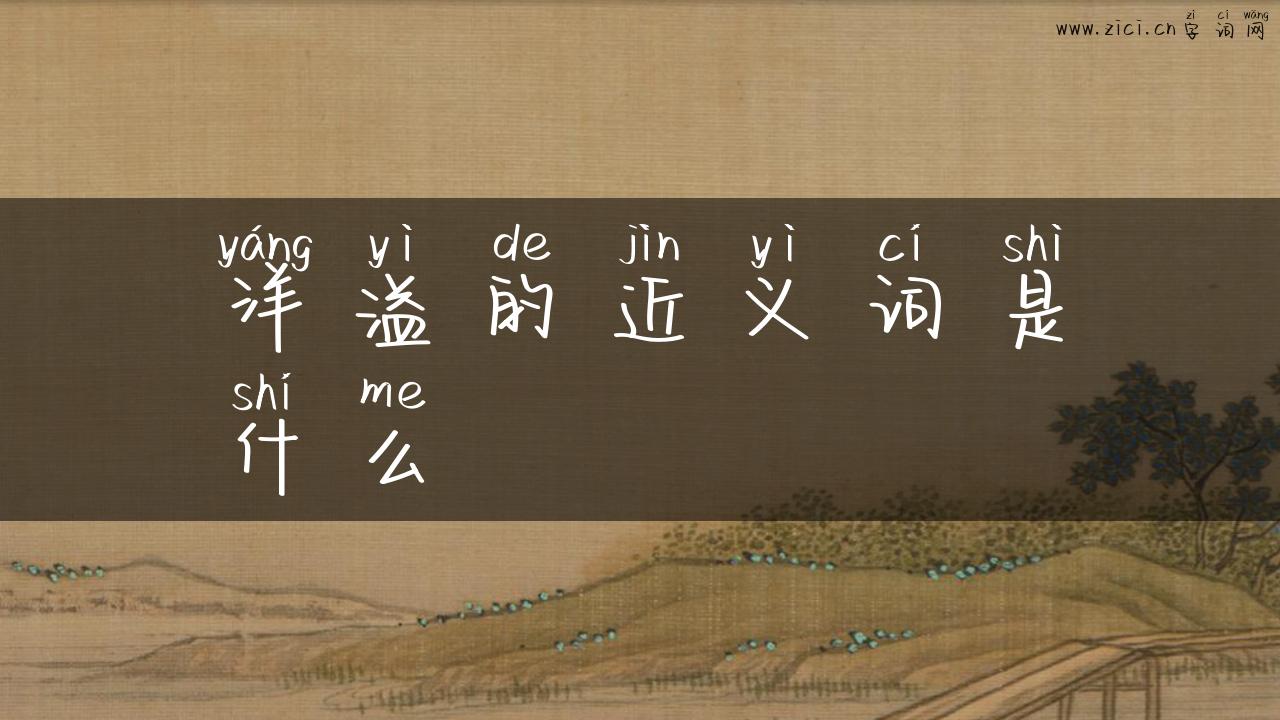 zì cí wǎng
www.zici.cn 字词网
yáng yì de jìn yì cí shì
洋溢的近义词是
shí me
什么